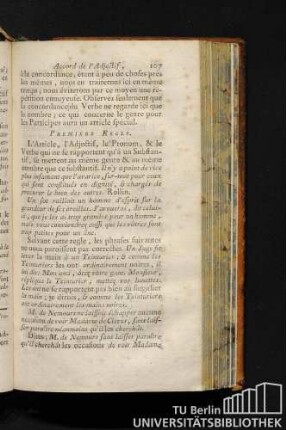 Accord de l'Adjectif, 107
la concordance, étant à peu de choses près
les mêmes, nous en traiterons ici en même
temps; nous éviterons par ce moyen une répétition
ennuyeuse. Observez seulement que
la concordance du Verbe ne regarde ici que
le nombre; ce qui concerne le genre pour
les Participes aura un article spécial.
PREMIERE REGLE.
L'Article, l'Adjectif, le Pronom, & le
Verbe qui ne se rapportent qu'à un Substantif,
se mettent au même genre & au même
nombre que ce substantif. Il n'y a point de vice
plus infamant que l'avarice, sur-tout pour ceux
qui sont constitués en dignité, & chargés de
procurer le bien des autres. Rollin.
Un fat railloit un homme d'esprit sur la
grandeur de ses oreilles. J'ai
que je les ai trop grandes pour un homme,
mais vous conviendrez aussi que les vôtres sont
trop petites pour un âne.
Suivant cette regle, les phrases suivantes
ne nous paroissent pas correctes. Un Juge
la main à un Teinturier; & comme les
Teinturiers les ont ordinairement noires, il
lui dit: Mon ami, ôtez votre gant. Monsieur,
réplique le Teinturier, mettez vos lunettes.
ne se rapportent pas bien au singulier
la main;
ont ordinairement les mains noires.
M. de Nemours ne laissoit échapper aucune
occasion de voir Madame de Cleves, sans laisser
paroître néanmoins qu'il les cherchât.
Dites, M. de Nemours sans laisser paroître
qu'il cherchât les occasions de voir Madame
TU Berlin
UNIVERSITÄTSBIBLIOTHEK